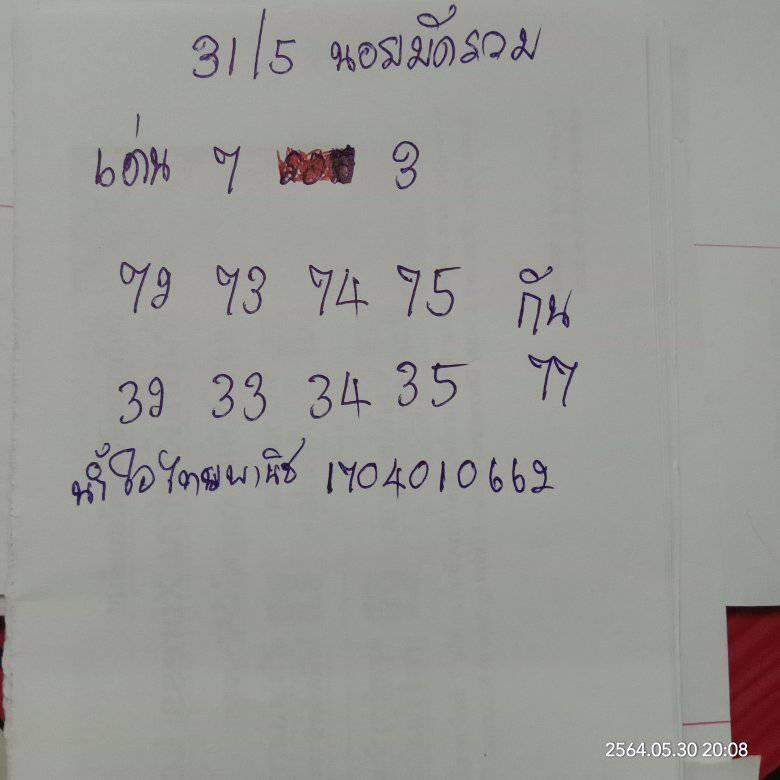 31/5 นอยมัดรวม
เด่น 7 3
72 73 74 75 กัน
32 33 34 35 77
น้ำใจไทยพานิช 1704010662
2564.05.30 20:08